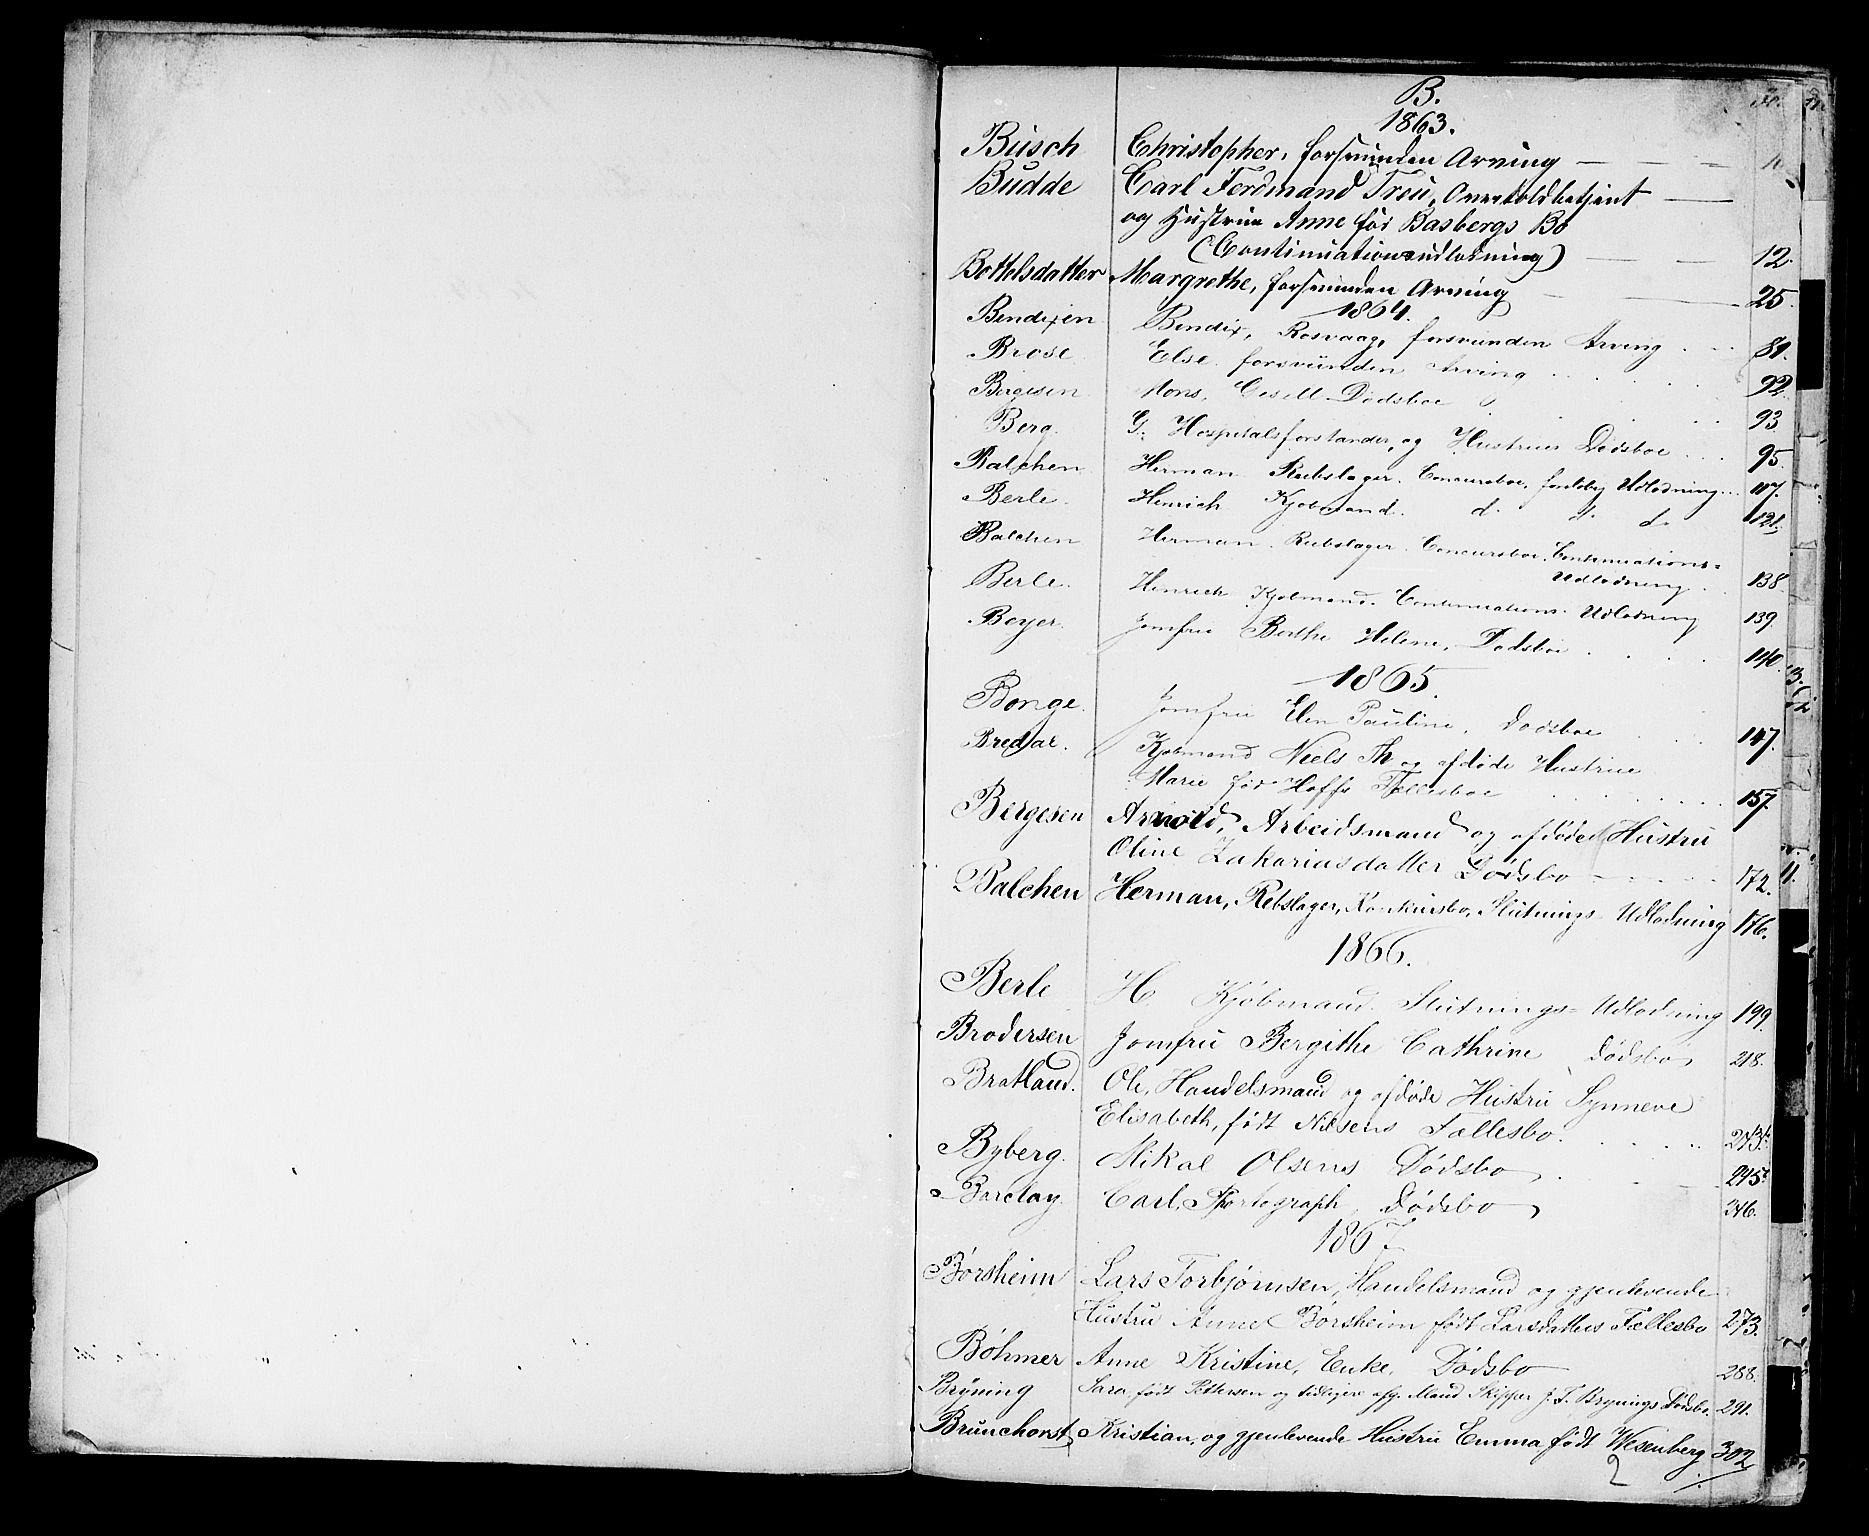 B.
1863.
Busch Christopher, forsvunden Arving
Budde Carl Ferdinand Treu, Overtoldbetjent
og Hustrue Anne før Basbergs Bo
(Continuationsudlodning) 12.
Bottolsdatter Margrethe, forsvunden Arving 25.
1864.
Bendixen Bendix, Rosvaag, forsvunden Arving 81.
Brose Else forsvunden Arving 92.
Børgesen Mons, Gesell Dødsboe 93
Berg. G. Hospitalsforstander, og Hustrues Dødsboe 95.
Balchen Herman Rebslager. Concursboe, foreløbig Udlodning 117.
Berle. Henrich Kjøbmand. d. d. d. 121.
Balchen Herman. Rebslager. Concursboe. Continuations=
Udlodning 138.
Berle. Henrich Kjøbmand. Continuations. Udlodning 139.
Beyer. Jomfru Berthe Helene, Dødsboe 140.
1865.
Bonge. Jomfru Elen Pauline, Dødsboe 147.
Bredjar. Kjøbmand Niels Th og afdøde Hustrue
Marie før Hoffs Fællesboe 157.
Bergesen Arnold, Arbeidsmand og afdøde Hustru
Oline Zakariasdatter Dødsbo 172.
Balchen Herman, Rebslager, Konkursbo, Slutnings=Udlodning 176.
1866.
Berle H. Kjøbmand. Slutnings=Udlodning 199.
Brodersen Jomfru Bergithe Cathrine Dødsbo 218.
Bratland. Ole, Handelsmand og afdøde Hustru Synneve
Elisabeth, født Nilsens Fællesbo. 243.
Byberg. Mikal Olsens Dødsbo 245.
Barclay. Carl, Fotograph, Dødsbo 246.
1867
Børsheim Lars Torbjørnsen, Handelsmand og gjenlevende
Hustru Anne Børsheim født Larsdatters Fællesbo 273.
Bøhmer Anne Kristine, Enke, Dødsbo 288.
Bryning Sara født Pettersen og tidligere afg. Mand Skipper J. S. Brynings Dødsbo. 291.
Brunchorst, Kristian, og gjenlevende Hustru Emma født Wesenberg 302
2